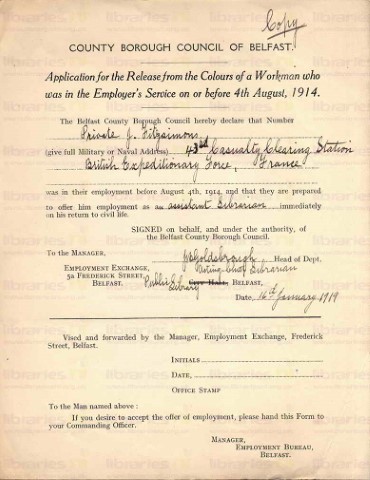 Copy
COUNTY BOROUGH COUNCIL OF BELFAST.
Application for the Release from the Colours of a Workman who
was in the Employer's Service on or before 4th August, 1914.
The Belfast County Borough Council hereby declare that Number
Private J. Fitzsimons
(give full Military or Naval Address) 43rd Casualty Clearing Station
British Expeditionary Force, France
was in their employment before August 4th, 1914, and that they are prepared
to offer him employment as an assistant Librarian immediately
on his return to civil life.
SIGNED on behalf, and under the authority, of
the Belfast County Borough Council.
To the MANAGER, Goldsbrough Head of Dept.
EMPLOYMENT EXCHANGE, Acting Chief Librarian
5A FREDERICK STREET,
BELFAST. Public Library City Hall, BELFAST,
Date, 16th January 1919
Vised and forwarded by the Manager, Employment Exchange, Frederick
Street, Belfast.
INITIALS
DATE,
OFFICE STAMP
To the Man named above :
If you desire to accept the offer of employment, please hand this Form to
your Commanding Officer.
MANAGER,
EMPLOYMENT BUREAU,
BELFAST.